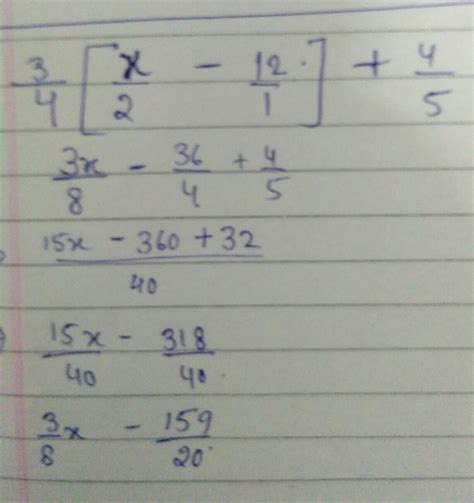 3/4 [ x/2 - 12/1 ] + 4/5
3x/8 - 36/4 + 4/5
15x - 360 + 32 / 40
15x/40 - 318/40
3/8 x - 159/20